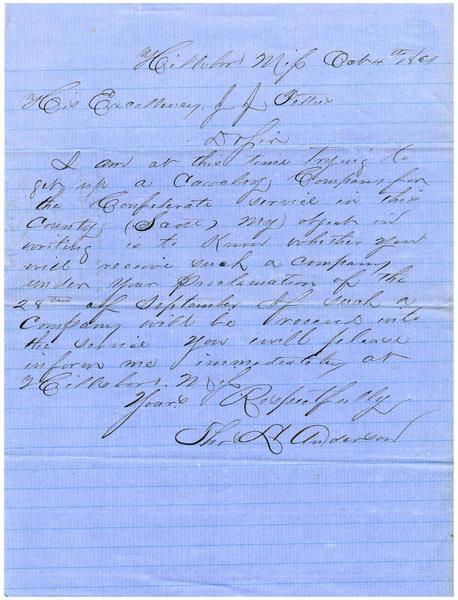 Hillsboro Miss Oct 4th 1861
His Excellency J J Pettus
Dr Sir
I am at this time trying to
get up a Cavalry Company for
the Confederate service in this
County (Scott) My object in
writing is to Know whether you
will receive such a company
under your Proclamation of the
28th of September If such a
Company will be received into
the service you will please
inform me immediately at
Hillsboro. Miss
Yours Respectfully
Thos H Anderson